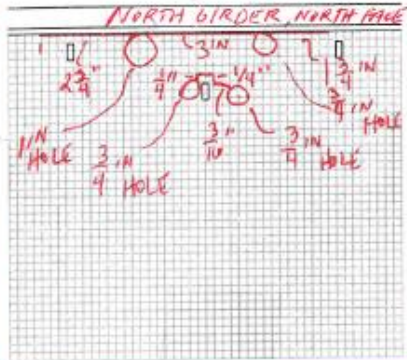 NORTH GIRDER, NORTH FACE
3 IN
2 3/4"
1/4" 1/4"
1 3/4 IN
3/4 IN
HOLE
1 IN
HOLE
3/4 IN
HOLE
3/16"
3/4 IN
HOLE